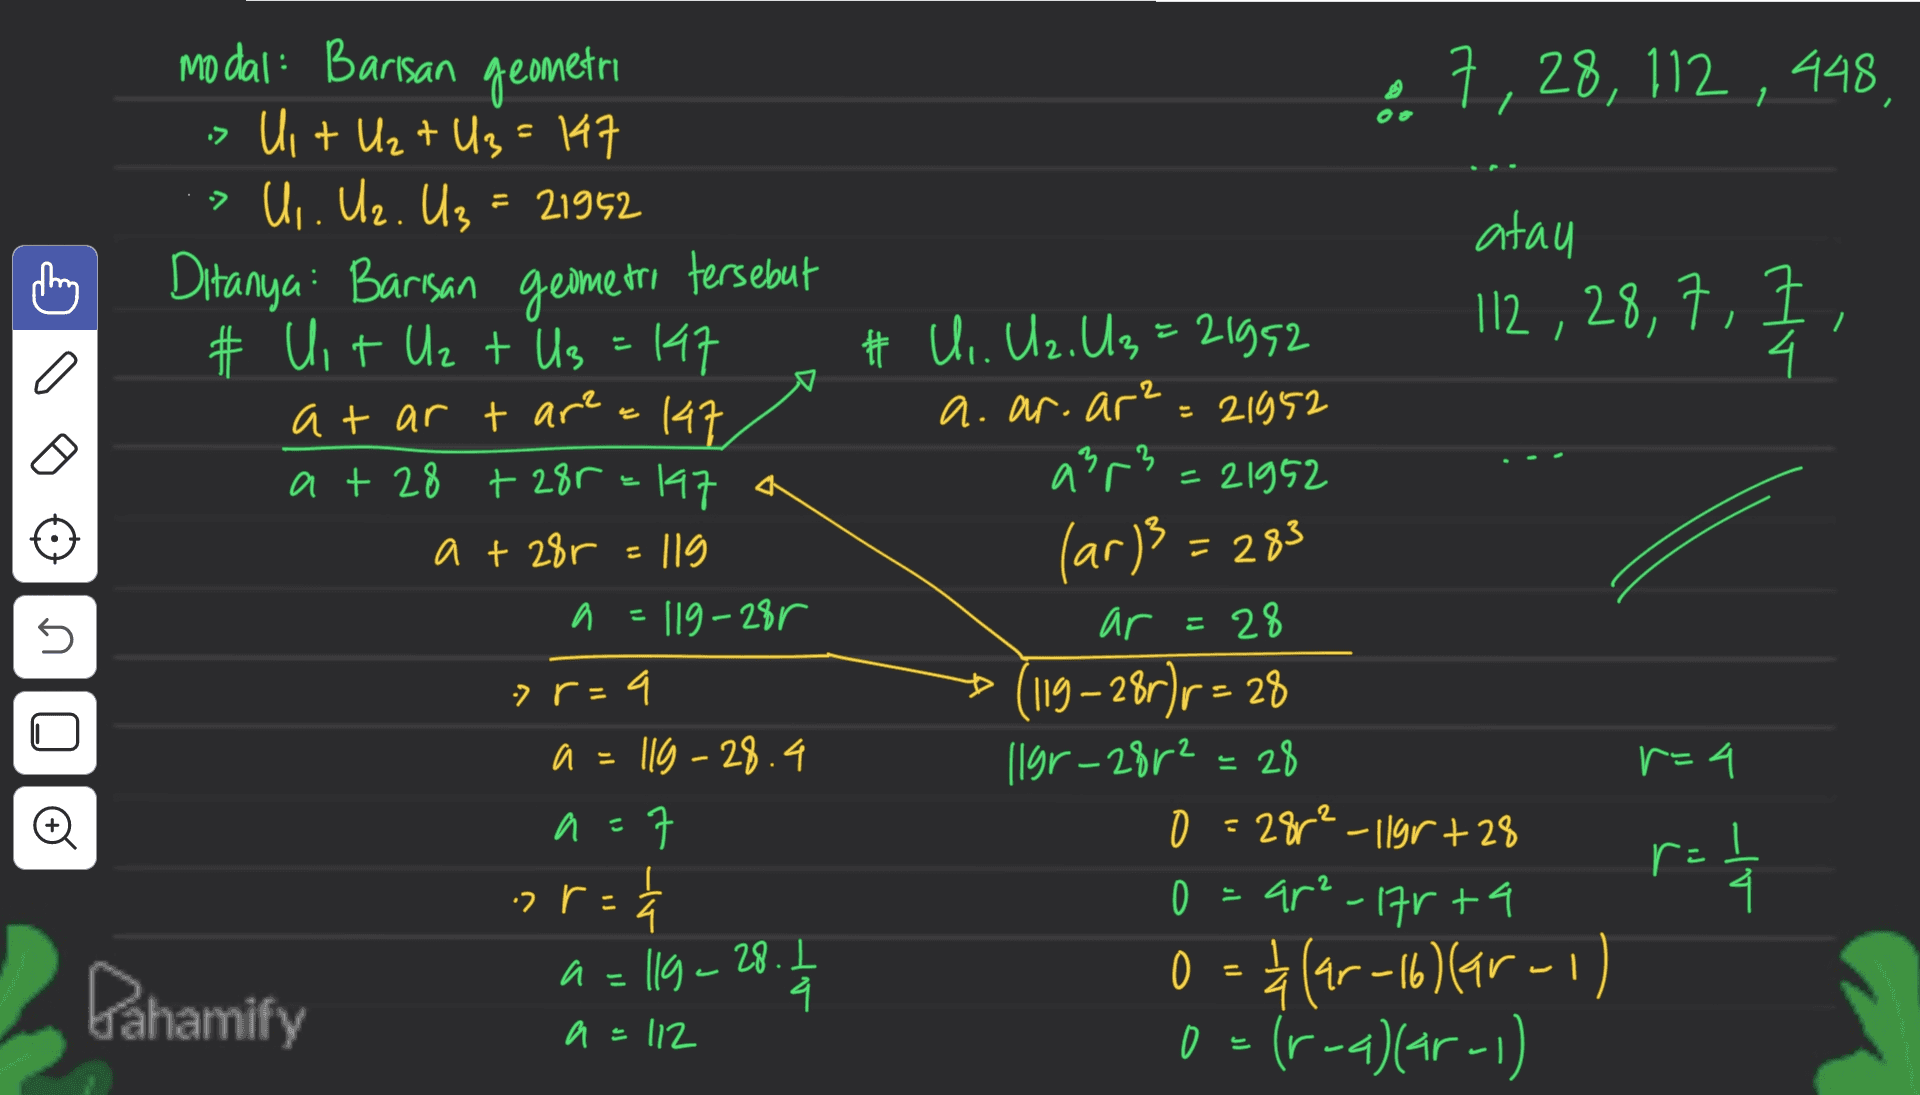 modal: Barisan geometri
-> U₁ + U₂ + U₃ = 147
-> U₁. U₂. U₃ = 21952
Ditanya: Barisan geometri tersebut
# U₁ + U₂ + U₃ = 147
a + ar + ar² = 147
a + 28 + 28r = 147
a + 28r = 119
a = 119 - 28r
-> r = 4
a = 119 - 28.4
a = 7
-> r = 1/4
a = 119 - 28. 1/4
a = 112
# U₁. U₂. U₃ = 21952
a. ar. ar² = 21952
a³r³ = 21952
(ar)³ = 28³
ar = 28
(119 - 28r)r = 28
119r - 28r² = 28
0 = 28r² - 119r + 28
0 = 4r² - 17r + 4
0 = 1/4 (4r - 16)(4r - 1)
0 = (r - 4)(4r - 1)
r = 4
r = 1/4
∴ 7, 28, 112, 448,
...
atau
112, 28, 7, 7/4,
...
Pahamify